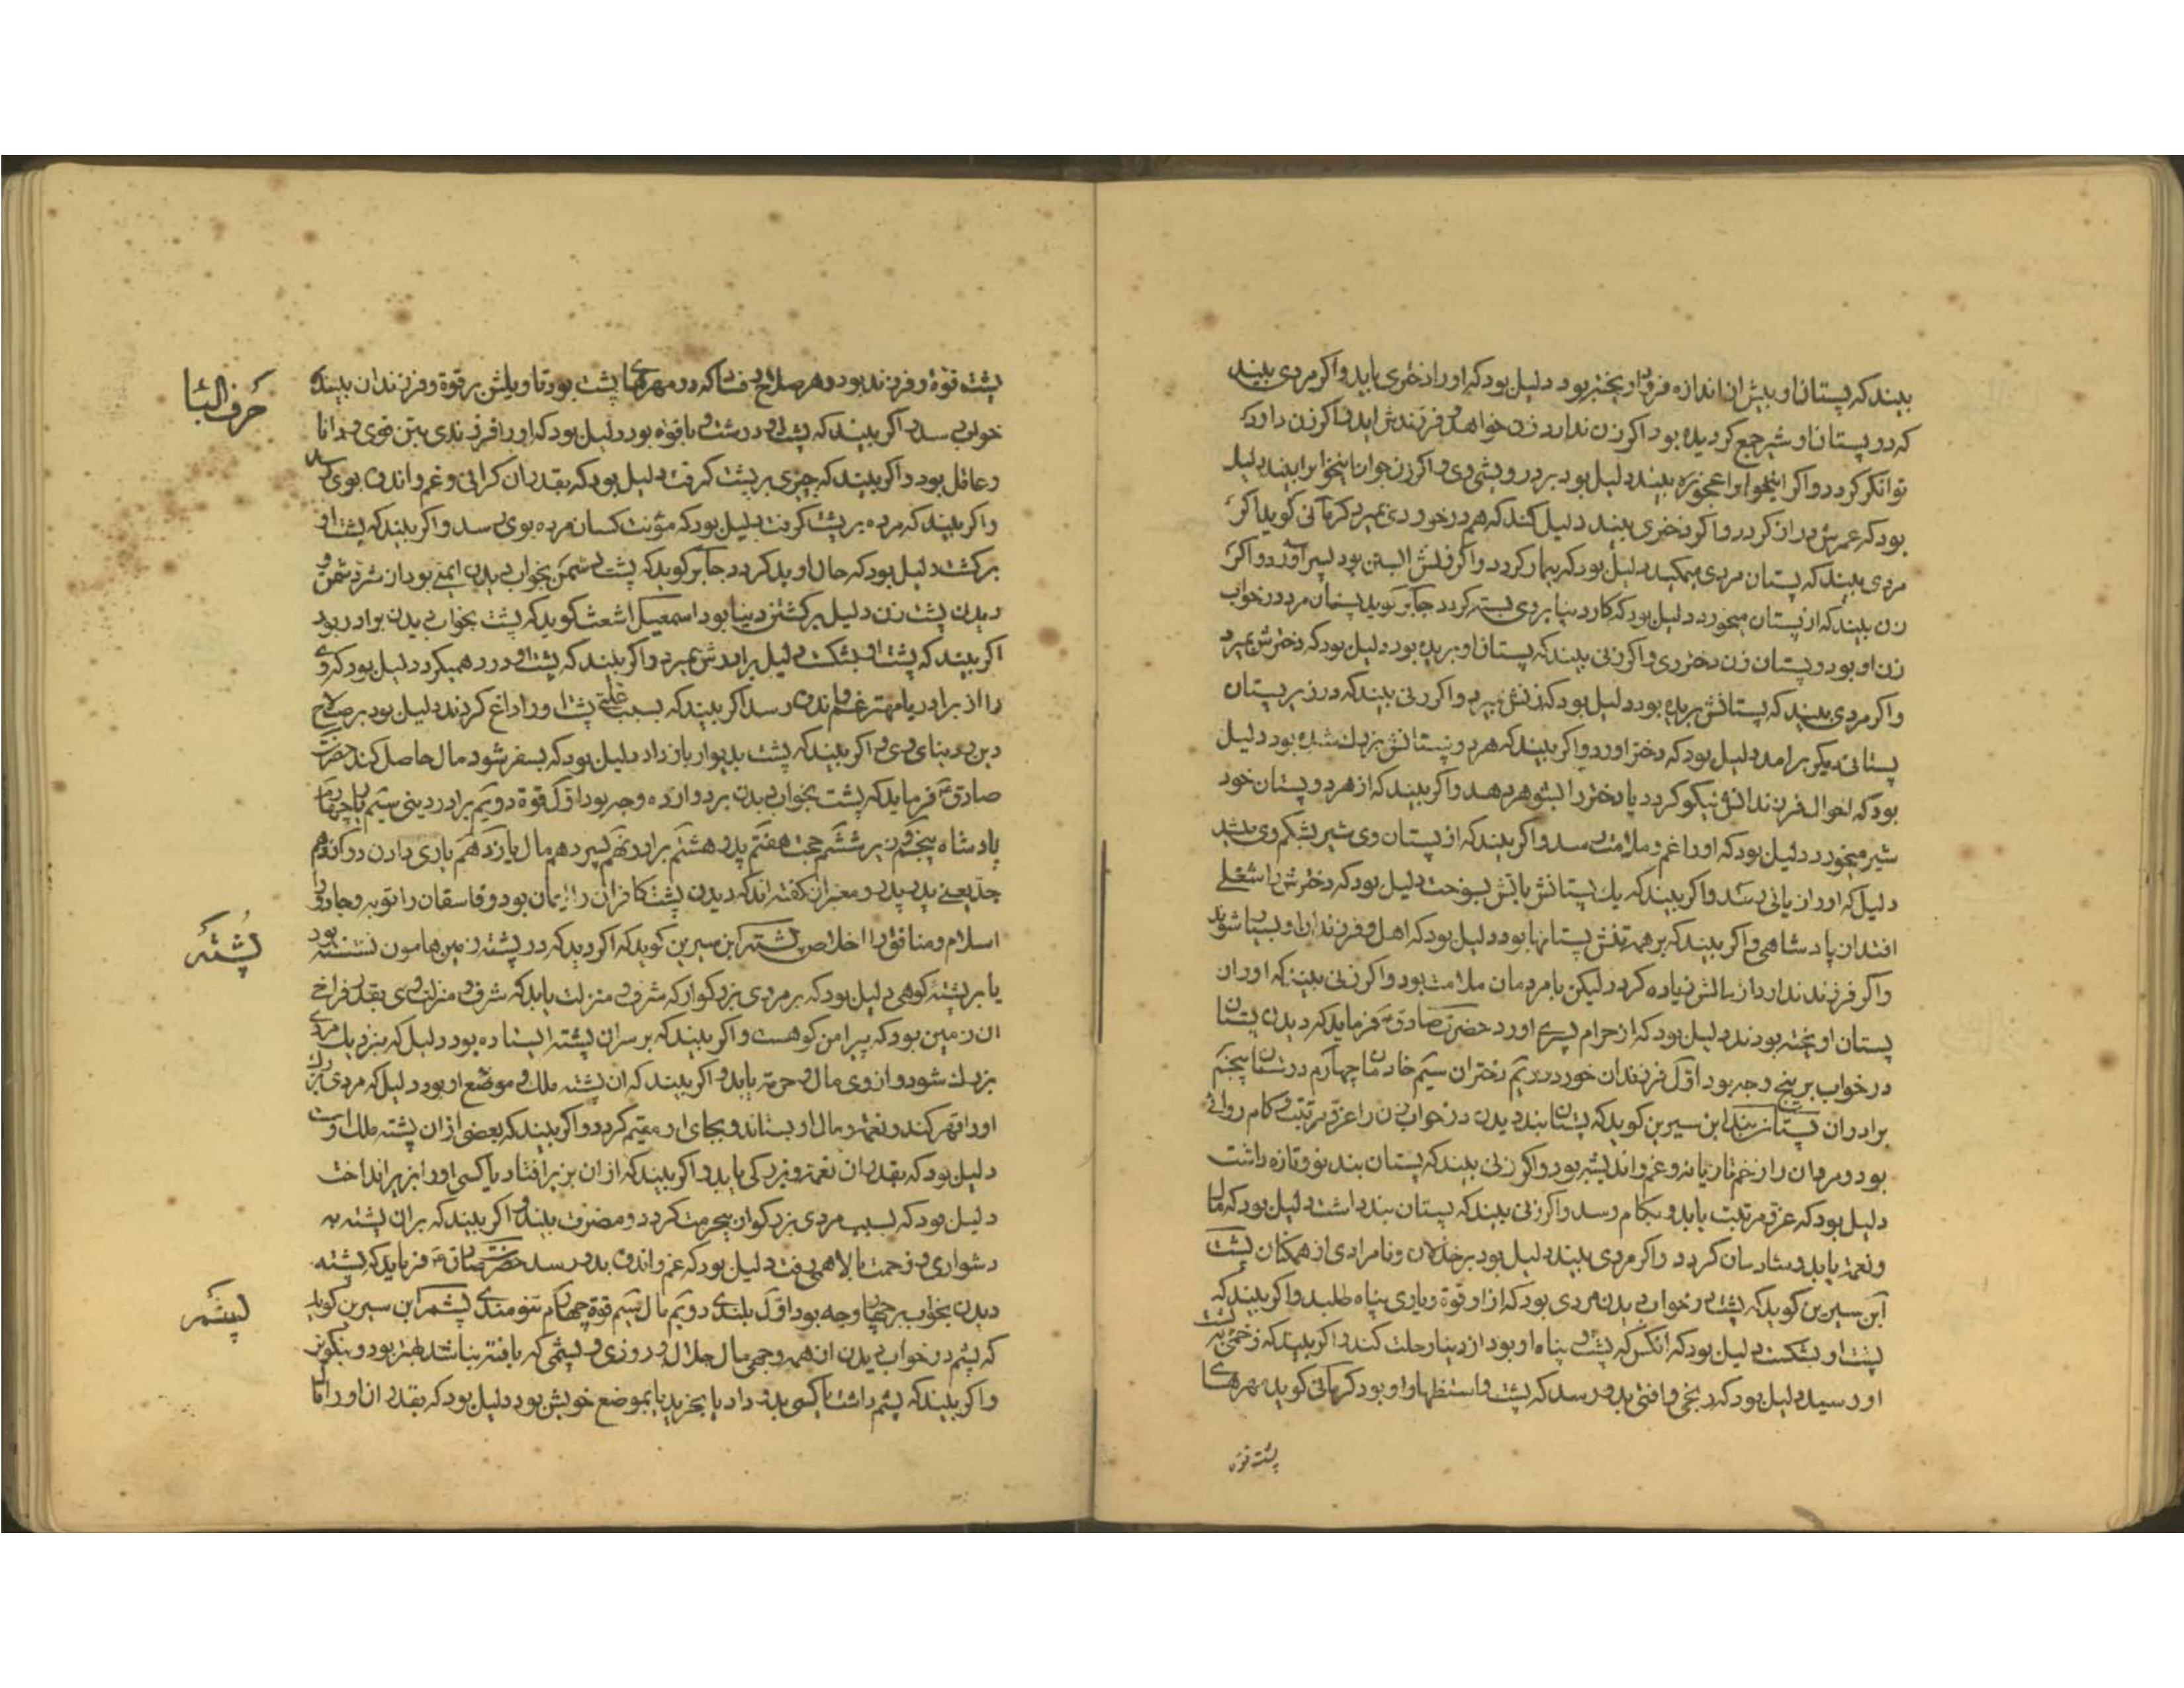 بیند که پستان او بیش از اندازه فرو آویخته بود دلیل بود که او را دختری باید و اکر مردی بیند
که در پستان او شیر جمع کردیده بود اکر زن ندارد زن خواهد و فرزندش اید و اکر زن دارد
توانکر کردد و اکر اینخواب را عجوزه بیند دلیل بود بر درویشی وی و اکر زن جوان اینخواب را بیند دلیل
بود که عمرش دراز کردد و اکر دختری بیند دلیل کند که هم در خوردی بمیرد کرمانی کوید اکر
مردی بیند که پستان مردی میمکید دلیل بود که بیمار کردد و اکر زنش ابستن بود پسر آورد و اکر
زن بیند که از پستان میخورد دلیل بود که کار دنیا بر وی بسته کردد جابر کوید پستان مرد در خواب
زن او بود و پستان زن دختر وی و اکر زنی بیند که پستان او بریده بود دلیل بود که دخترش بمیرد
و اکر مردی بیند که پستانش بریده بود دلیل بود که زنش بمیرد و اکر زنی بیند که در زیر پستان
پستانی دیکر برامد دلیل بود که دختر اورد و اکر بیند که هر دو پستانش بزرك شده بود دلیل
بود که احوال فرزندانش نیکو کردد یا دختر را بشوهر دهد و اکر بیند که از هر دو پستان خود
شیر میخورد دلیل بود که او را غم و ملامت رسد و اکر بیند که از پستان وی شیر بشکم وی
دلیل که او را زیانی رسد و اکر بیند که یك پستانش باتش بسوخت دلیل بود که دخترش را شغلی
افتد از پادشاهی و اکر بیند که بر همه تنش پستانها بود دلیل بود که اهل و فرزندان او بسیار شوند
و اکر فرزند ندارد مالش زیاده کردد لیکن با مردمان ملامت بود و اکر زنی بیند که او را از
پستان اویخته بودند دلیل بود که از حرام پسری اورد حضرت صادق ع فرماید که دیدن پستان
در خواب بر پنج وجه بود اول فرزندان خورد دویم دختران سیم خادمان چهارم دوستان پنجم
برادران پستان بند ابن سیرین کوید که پستان بند دیدن در خواب زن را عز و مرتبت و کام روائی
بود و مردان را زخم تازیانه و غم و اندیشه بود و اکر زنی بیند که پستان بند نو و تازه داشت
دلیل بود که عز و مرتبت یابد و بکام رسد و اکر زنی بیند که پستان بند داشت دلیل بود که مال
و نعمت یابد و شادمان کردد و اکر مردی بیند دلیل بود بر خذلان و نامرادی از همکنان پشت
ابن سیرین کوید که پشت در خواب دیدن مردی بود که از او قوة و یاری پناه طلبد و اکر بیند که
پشت او بشکست دلیل بود که انکس که پشت و پناه او بود از دنیا رحلت کند و اکر بیند که زخمی بر پشت
او رسید دلیل بود که رنجی و افتی بدو رسد که پشت و استظهار او بود کرمانی کوید مهرهای
پشت قوة
پشت قوة و فرزند بود و هر صلاح و فساد که در مهرهای پشت بود تاویلش بر قوة و فرزندان بیننده
خواب رسد و اکر بیند که پشت او درست و با قوة بود دلیل بود که او را فرزندی بتن قوی و دانا
و عاقل بود و اکر بیند که چیزی بر پشت کرفت دلیل بود که بقدر ان کرانی و غم و اندوه بوی رسد
و اکر بیند که مرده بر پشت کرفت دلیل بود که مؤنت کسان مرده بوی رسد و اکر بیند که پشت او
برکشت دلیل بود که حال او بد کردد جابر کوید که پشت دشمن بخواب دیدن ایمنی بود از شر دشمن و
دیدن پشت زن دلیل برکشتن دنیا بود اسمعیل اشعث کوید که پشت بخواب دیدن برادر بود
اکر بیند که پشت او بشکست دلیل برادرش بمیرد و اکر بیند که پشت او درد همیکرد دلیل بود که وی
را از برادر یا مهتر غم و اندوه رسد اکر بیند که بسبب علتی پشت او را داغ کردند دلیل بود بر صلاح
دین و دنیای وی و اکر بیند که پشت بدیوار باز داد دلیل بود که بسفر شود و مال حاصل کند حضرت
صادق ع فرماید که پشت بخواب دیدن بر دوازده وجه بود اول قوة دویم برادر دینی سیم یار چهارم
پادشاه پنجم وزیر ششم حجت هفتم پدر هشتم برادر نهم پسر دهم مال یازدهم یاری دادن دوازدهم
جد یعنی پدر پدر و معبران کفته اند که دیدن پشت کافران را ایمان بود و فاسقان را توبه و جادو را
اسلام و منافق را اخلاص پشته ابن سیرین کوید که اکر دید که در پشته زمین هامون نشسته بود
یا بر پشته کوهی دلیل بود که بر مردی بزرکوار که شرف و منزلت یابد که شرف و منزلت وی بقدر فراخی
ان زمین بود که پیرامن کوهست و اکر بیند که بر سر ان پشته ایستاده بود دلیل که بنزدیك مردی
بزرك شود و از وی مال و حرمت یابد و اکر بیند که ان پشته ملك و موضع او بود دلیل که مردی بزرك
او را قهر کند و نعمت و مال او بستاند و بجای او مقیم کردد و اکر بیند که بعضی از ان پشته ملك اوست
دلیل بود که بقدر ان نعمت و بزرکی یابد و اکر بیند که از ان بزیر افتاد یا کسی او را بزیر انداخت
دلیل بود که بسبب مردی بزرکوار بیحرمت کردد و مضرت بیند و اکر بیند که بران پشته به
دشواری و زحمت بالا همی رفت دلیل بود که غم و اندوه بدو رسد حضرت صادق ع فرماید که پشته
دیدن بخواب بر چهار وجه بود اول بلندی دویم مال سیم قوة چهارم تنومندی پشم ابن سیرین کوید
که پشم در خواب دیدن ان همه وجهی مال حلال و روزی و پشمی که بافته نباشد بهتر بود و نیکوتر
و اکر بیند که پشم داشت یا کسی بدو داد یا بخرید یا بموضع خویش بود دلیل بود که بقدر ان او را مال
حرف البا
پشته
پشم